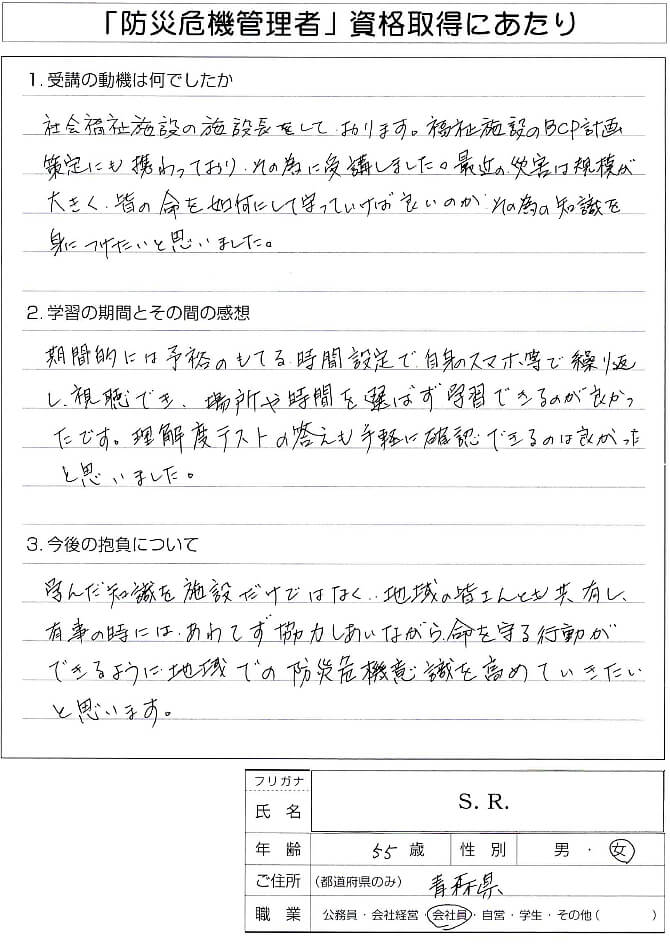 「防災危機管理者」資格取得にあたり
1. 受講の動機は何でしたか
社会福祉施設の施設長をしております。福祉施設のBCP計画
策定にも携わっており、その為に受講しました。最近の災害は規模が
大きく、皆の命を如何にして守っていけば良いのか、その為の知識を
身につけたいと思いました。
2. 学習の期間とその間の感想
期間的には予裕のもてる時間設定で、自身のスマホ等で繰り返
し視聴でき、場所や時間を選ばず学習できるのが良かっ
たです。理解度テストの答えも手軽に確認できるのは良かった
と思いました。
3. 今後の抱負について
学んだ知識を施設だけではなく、地域の皆さんとも共有し、
有事の時には、あわてず協力しあいながら、命を守る行動が
できるように地域での防災危機意識を高めていきたい
と思います。
フリガナ
氏 名 S. R.
年 齢 55 歳 性 別 男 ・ 女
ご住所 (都道府県のみ) 青森県
職 業 公務員・会社経営・会社員・自営・学生・その他( )